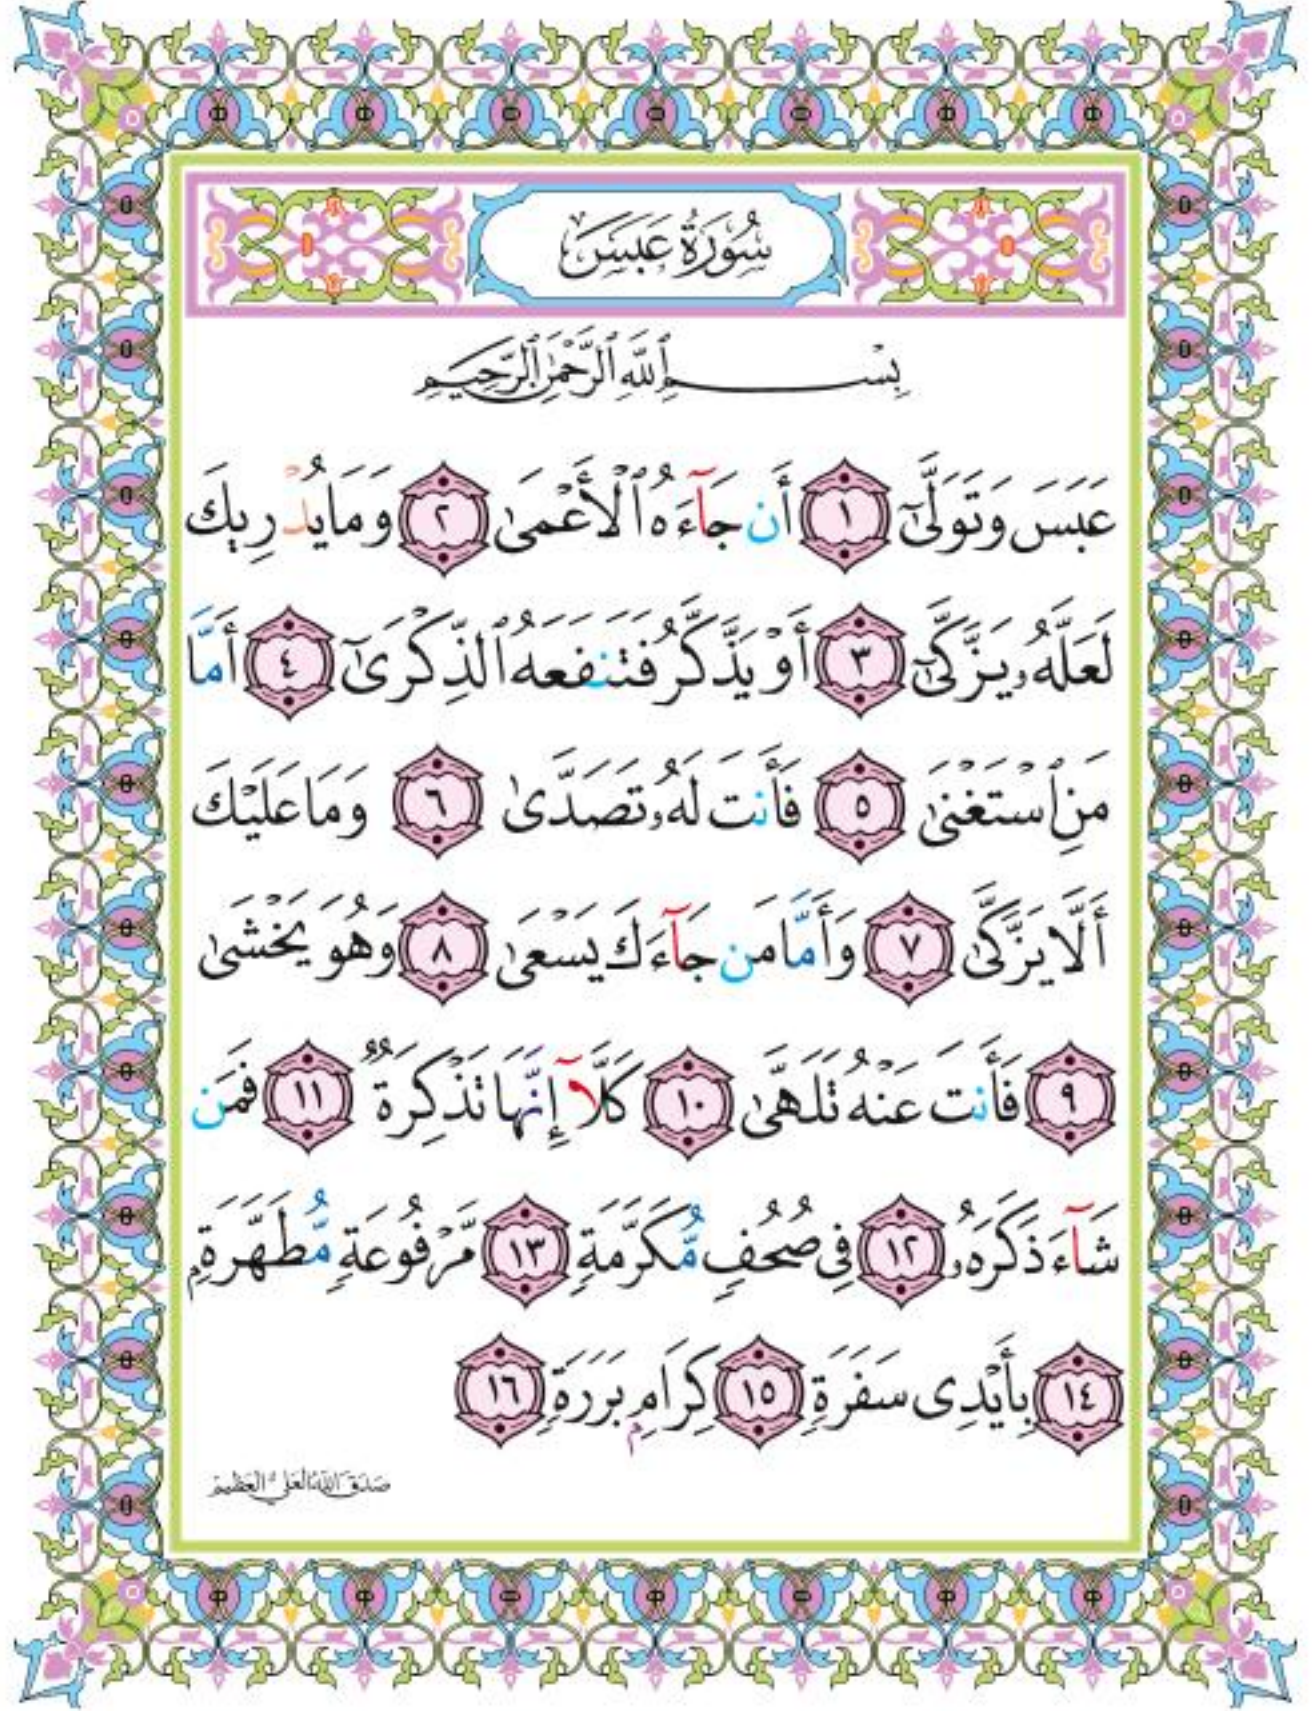 سُورَةُ عَبَسَ
بِسْمِ ٱللَّهِ ٱلرَّحْمَٰنِ ٱلرَّحِيمِ
عَبَسَ وَتَوَلَّىٰٓ ١ أَن جَآءَهُ ٱلْأَعْمَىٰ ٢ وَمَا يُدْرِيكَ
لَعَلَّهُۥ يَزَّكَّىٰٓ ٣ أَوْ يَذَّكَّرُ فَتَنفَعَهُ ٱلذِّكْرَىٰٓ ٤ أَمَّا
مَنِ ٱسْتَغْنَىٰ ٥ فَأَنتَ لَهُۥ تَصَدَّىٰ ٦ وَمَا عَلَيْكَ
أَلَّا يَزَّكَّىٰ ٧ وَأَمَّا مَن جَآءَكَ يَسْعَىٰ ٨ وَهُوَ يَخْشَىٰ
٩ فَأَنتَ عَنْهُ تَلَهَّىٰ ١٠ كَلَّآ إِنَّهَا تَذْكِرَةٌ ١١ فَمَن
شَآءَ ذَكَرَهُۥ ١٢ فِى صُحُفٍ مُّكَرَّمَةٍ ١٣ مَّرْفُوعَةٍ مُّطَهَّرَةٍۭ
١٤ بِأَيْدِى سَفَرَةٍ ١٥ كِرَامٍۭ بَرَرَةٍ ١٦
صَدَقَ اللَّهُ العَلِيُّ العَظِيمُ